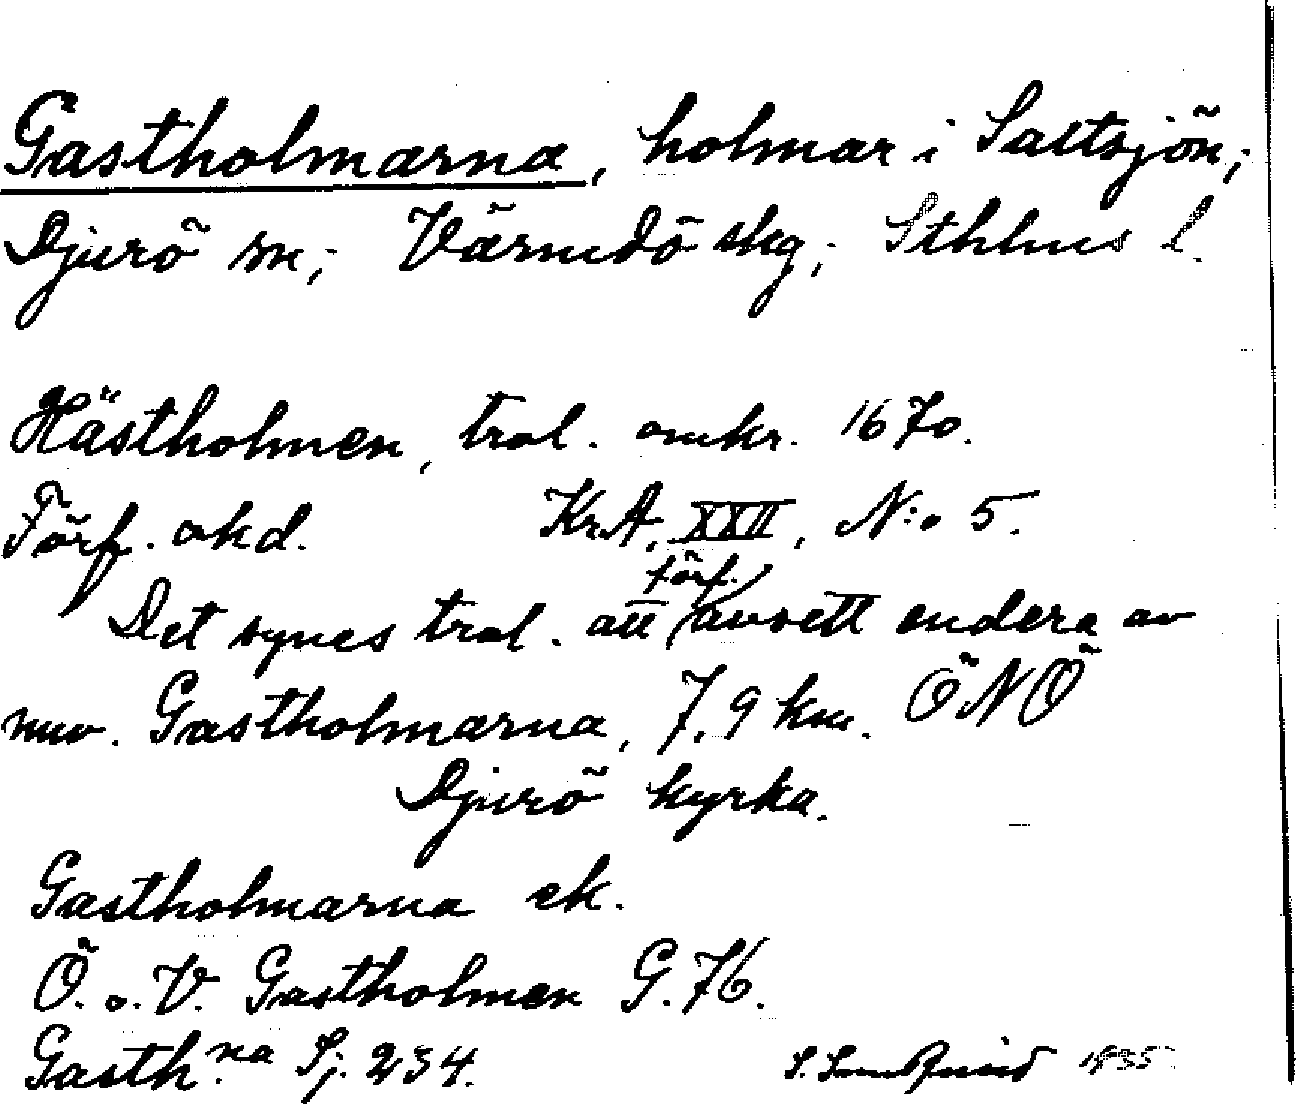 Gastholmarna, holmar i Saltsjön;
Djurö sn; Värmdö skg; Sthlms l.
Hästholmen, trol. omkr. 1670.
Förf. okd. KrA, XXII, N:o 5.
Det synes trol. att förf. avsett endera av
nuv. Gastholmarna, 7,9 km. ÖNÖ
Djurö kyrka.
Gastholmarna ek.
Ö. o. V. Gastholmen G.76.
Gasth.na Sj. 234.
1935